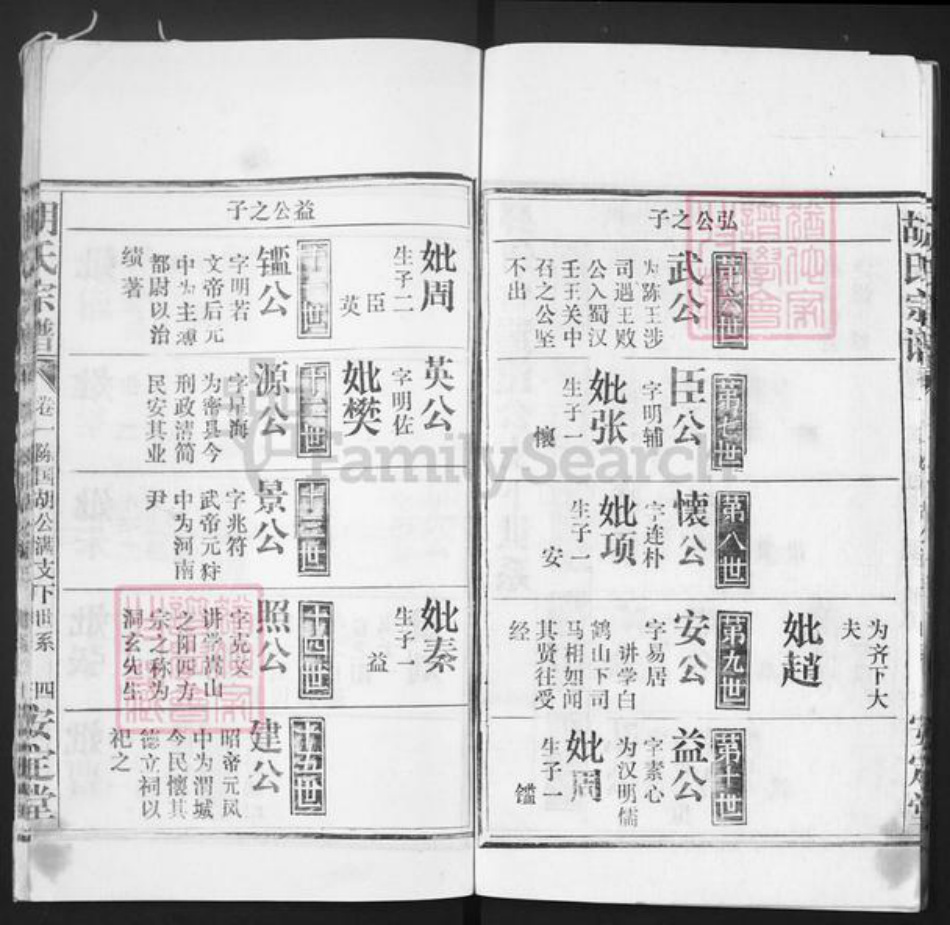 胡氏宗谱
弘公之子
为齐下大
夫
妣趙
第六世
武公
为陈王涉
司過王败
公入蜀汉
王王关中
召之公坚
不出
第七世
臣公
字明辅
妣张
生子一
懷
第八世
懷公
字连朴
妣项
生子一
安
第九世
安公
字易居
讲学白
鹤山下司
马相如闻
其贤往受
经
第十世
益公
字素心
为汉明儒
妣周
生子一
鑑
安定堂
益公之子
妣周
生子二
臣
英
英公
字明佐
妣樊
妣秦
生子一
益
十一世
鑑公
字明若
文帝后元
中为主溥
都尉以治
绩著
十二世
源公
字星海
为密县今
刑政清简
民安其业
十三世
景公
字兆符
武帝元狩
中为河南
尹
十四世
照公
字克文
讲学嵩山
之阳四方
宗之称为
洞玄先生
十五世
建公
昭帝元凤
中为渭城
今民懷其
德立祠以
祀之
胡氏宗谱
卷一陈国胡公满支下世系
四
安定堂
FamilySearch